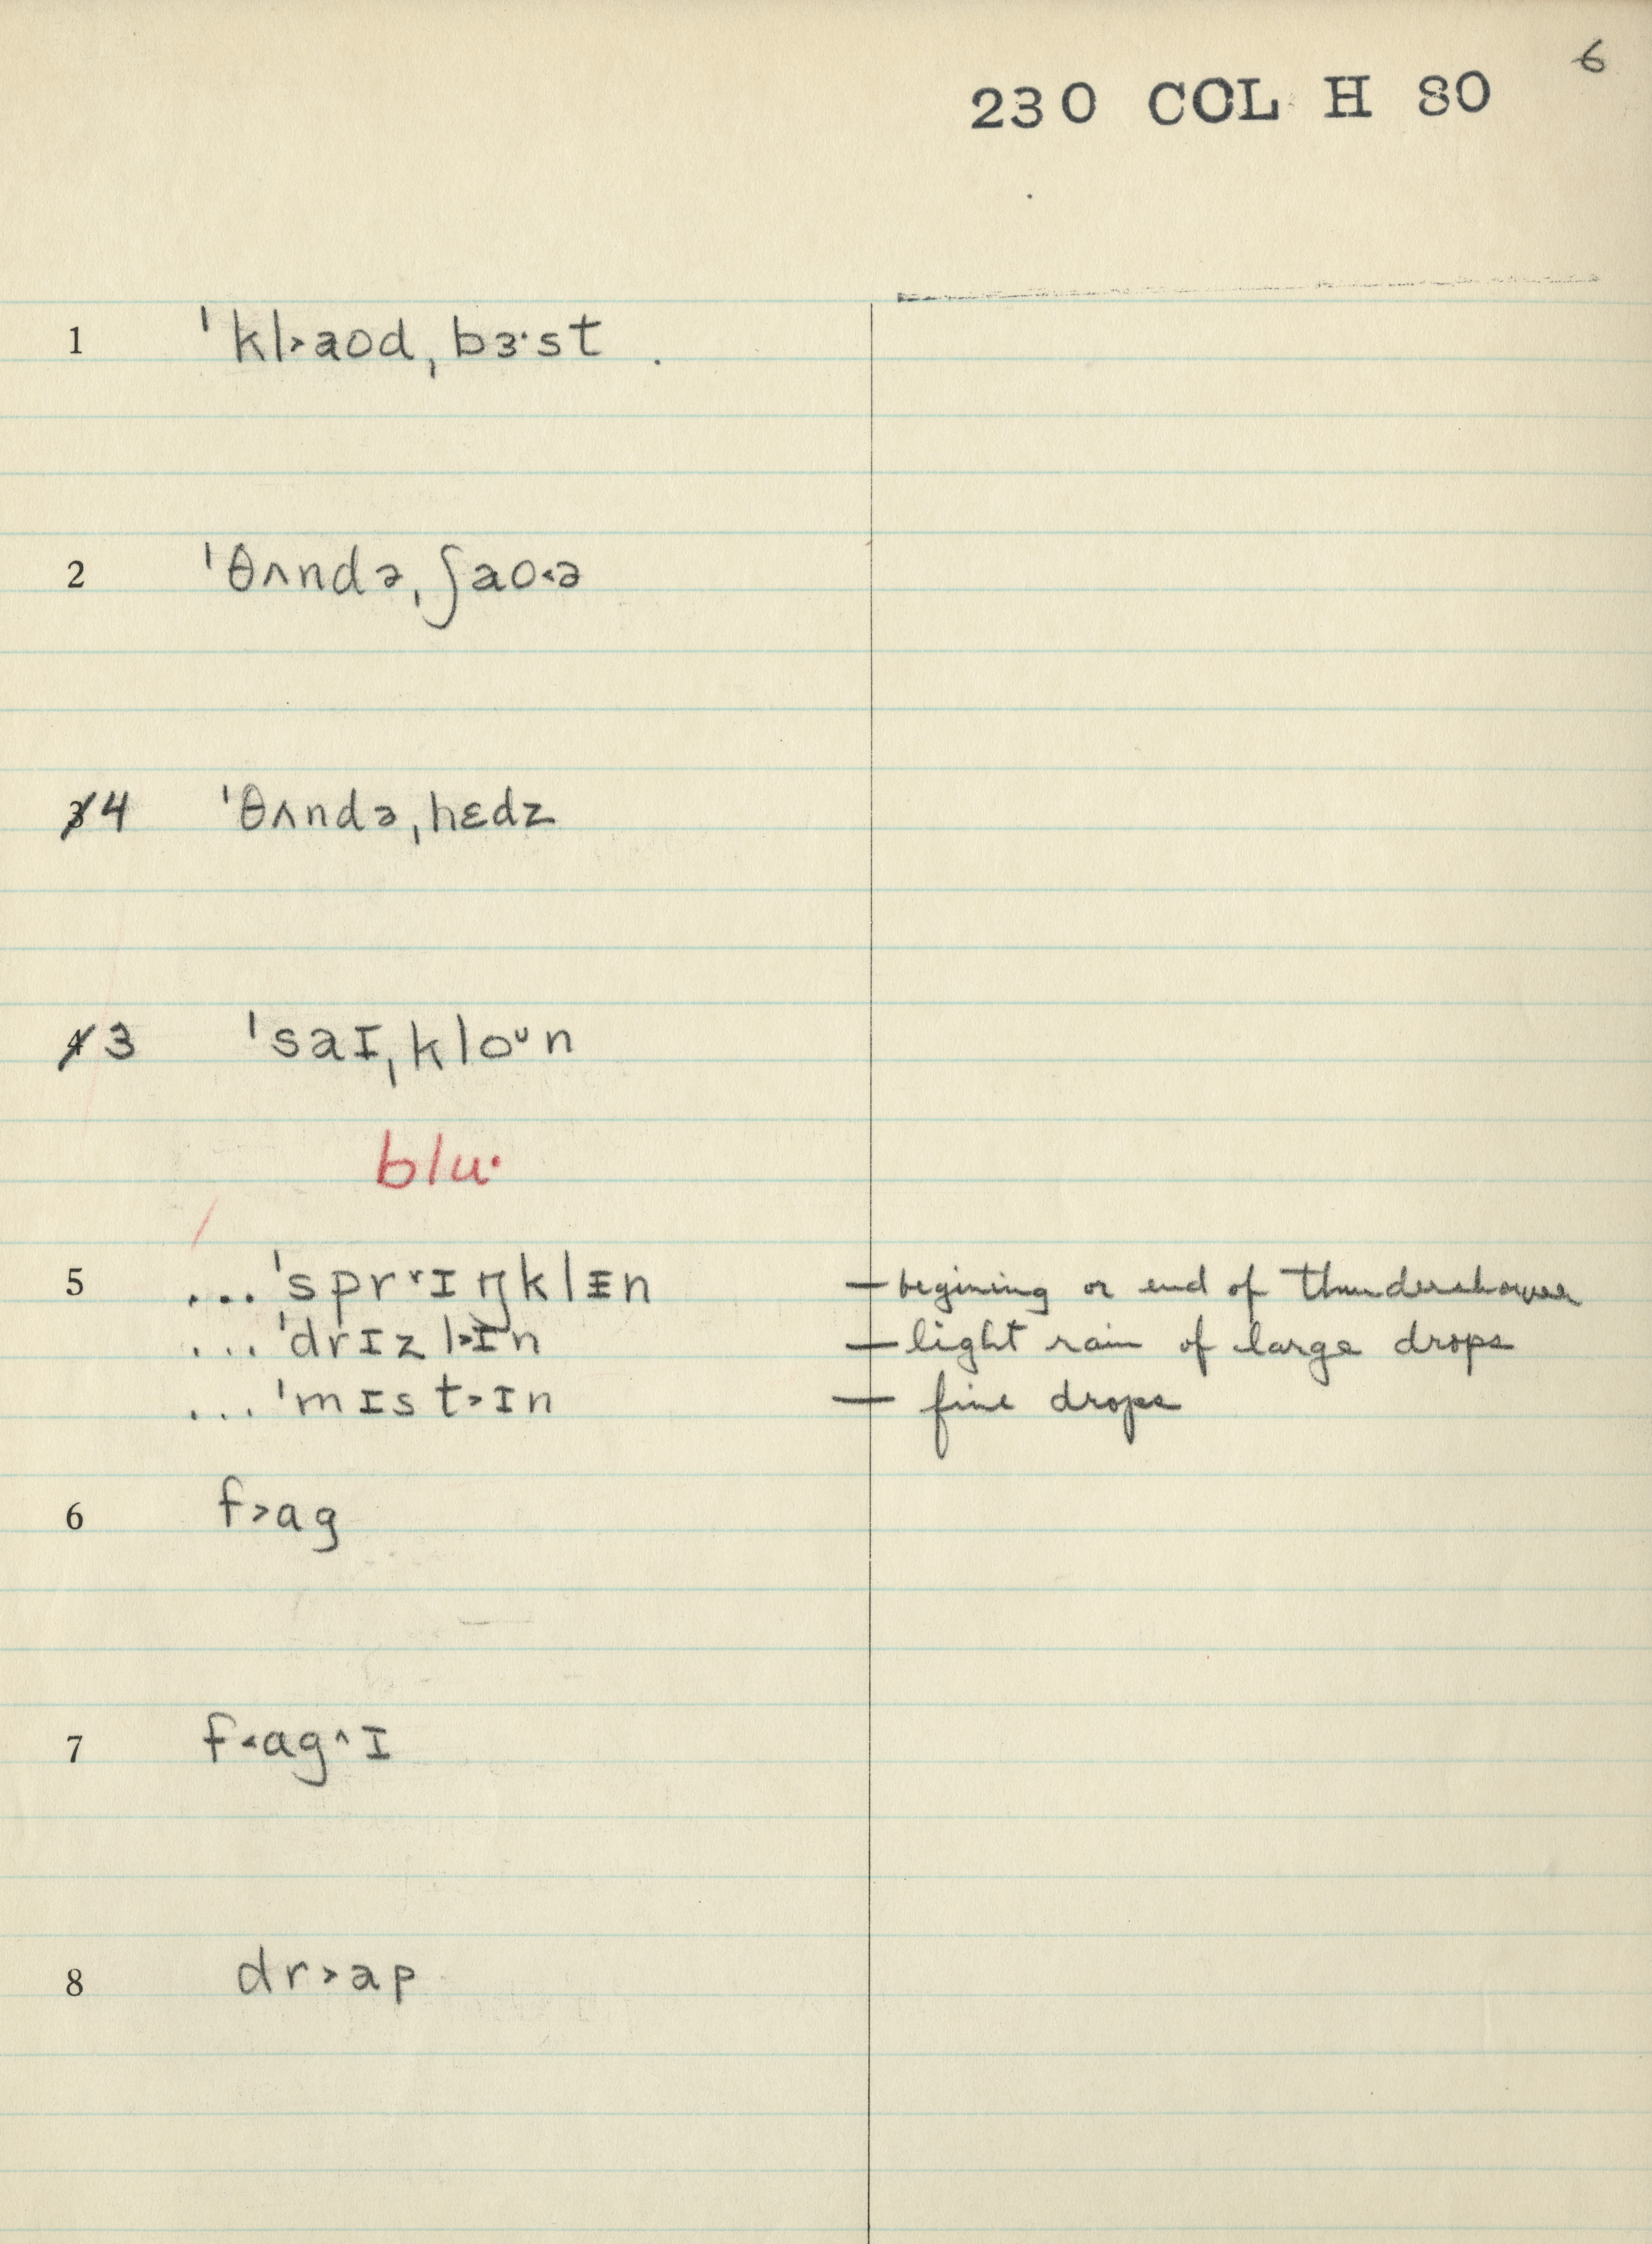 6
230 COL H 80
1 ˈkl˃aod ˌbɜ·st .
2 ˈθʌndə ˌʃao˂ə
3 4 ˈθʌndə ˌhɛdz
4 3 ˈsaɪ ˌkloᴜn
blu·
5 ... ˈspr˅ɪŋklɪn — begining or end of thundershower
... ˈdrɪzl˃ɪn — light rain of large drops
... ˈmɪst˃ɪn — fine drops
6 f˃ag
7 f˂ag^ɪ
8 dr˃ap